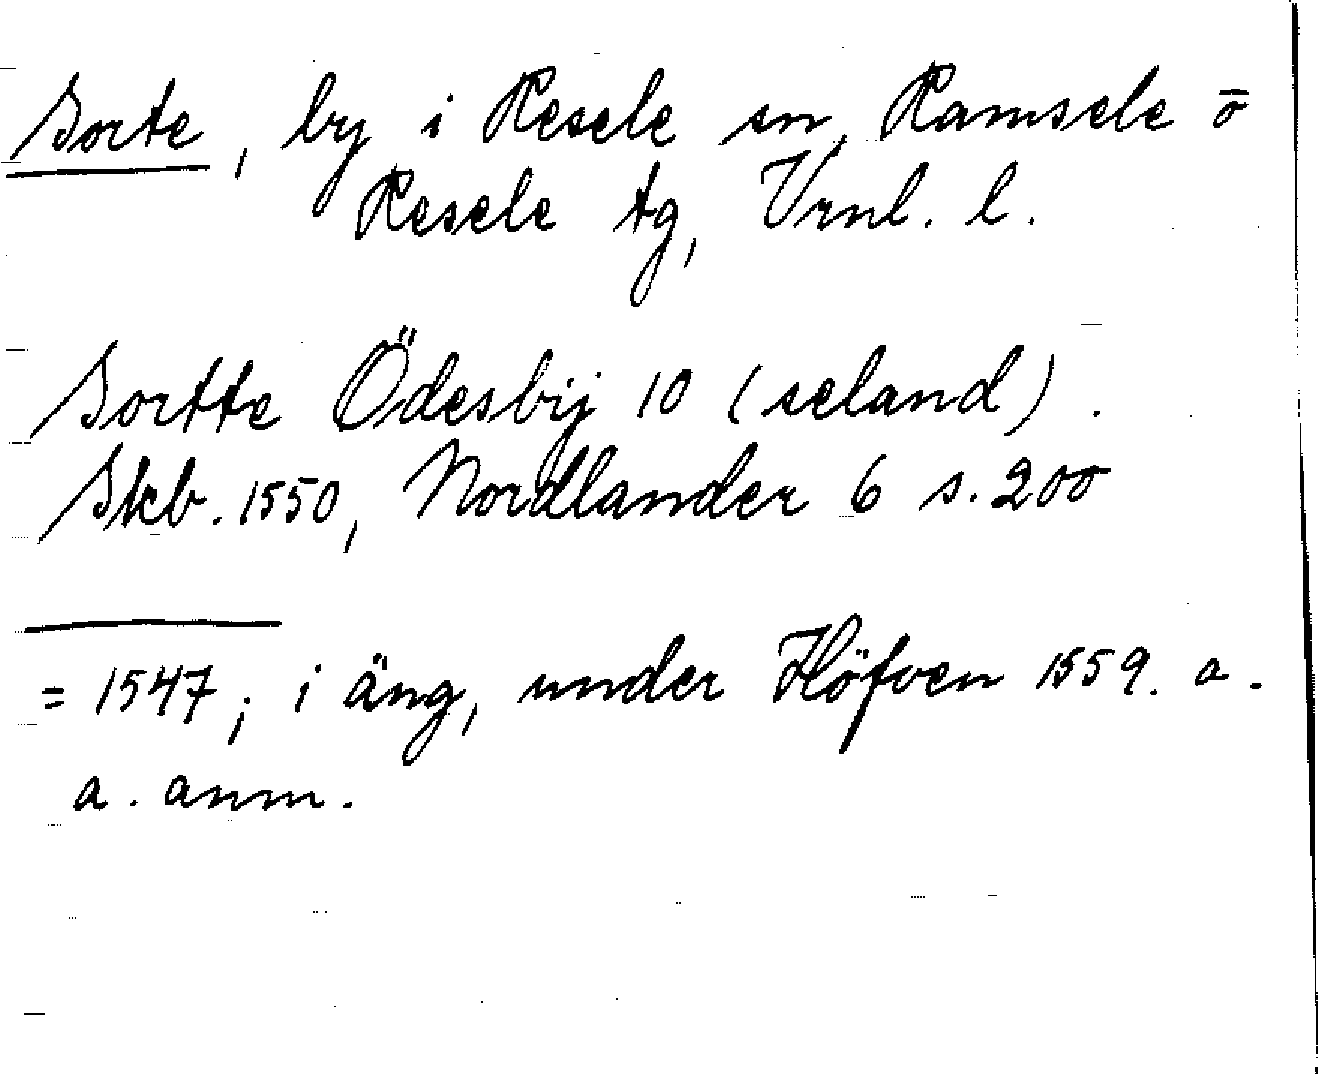 Sorte, by i Resele sn, Ramsele o
Resele tg, Vrnl. l.
Sortte Ödesbij 10 (seland).
Skb. 1550, Nordlander 6 s. 200
= 1547; i äng, under Höfven 1559. a.
a. anm.